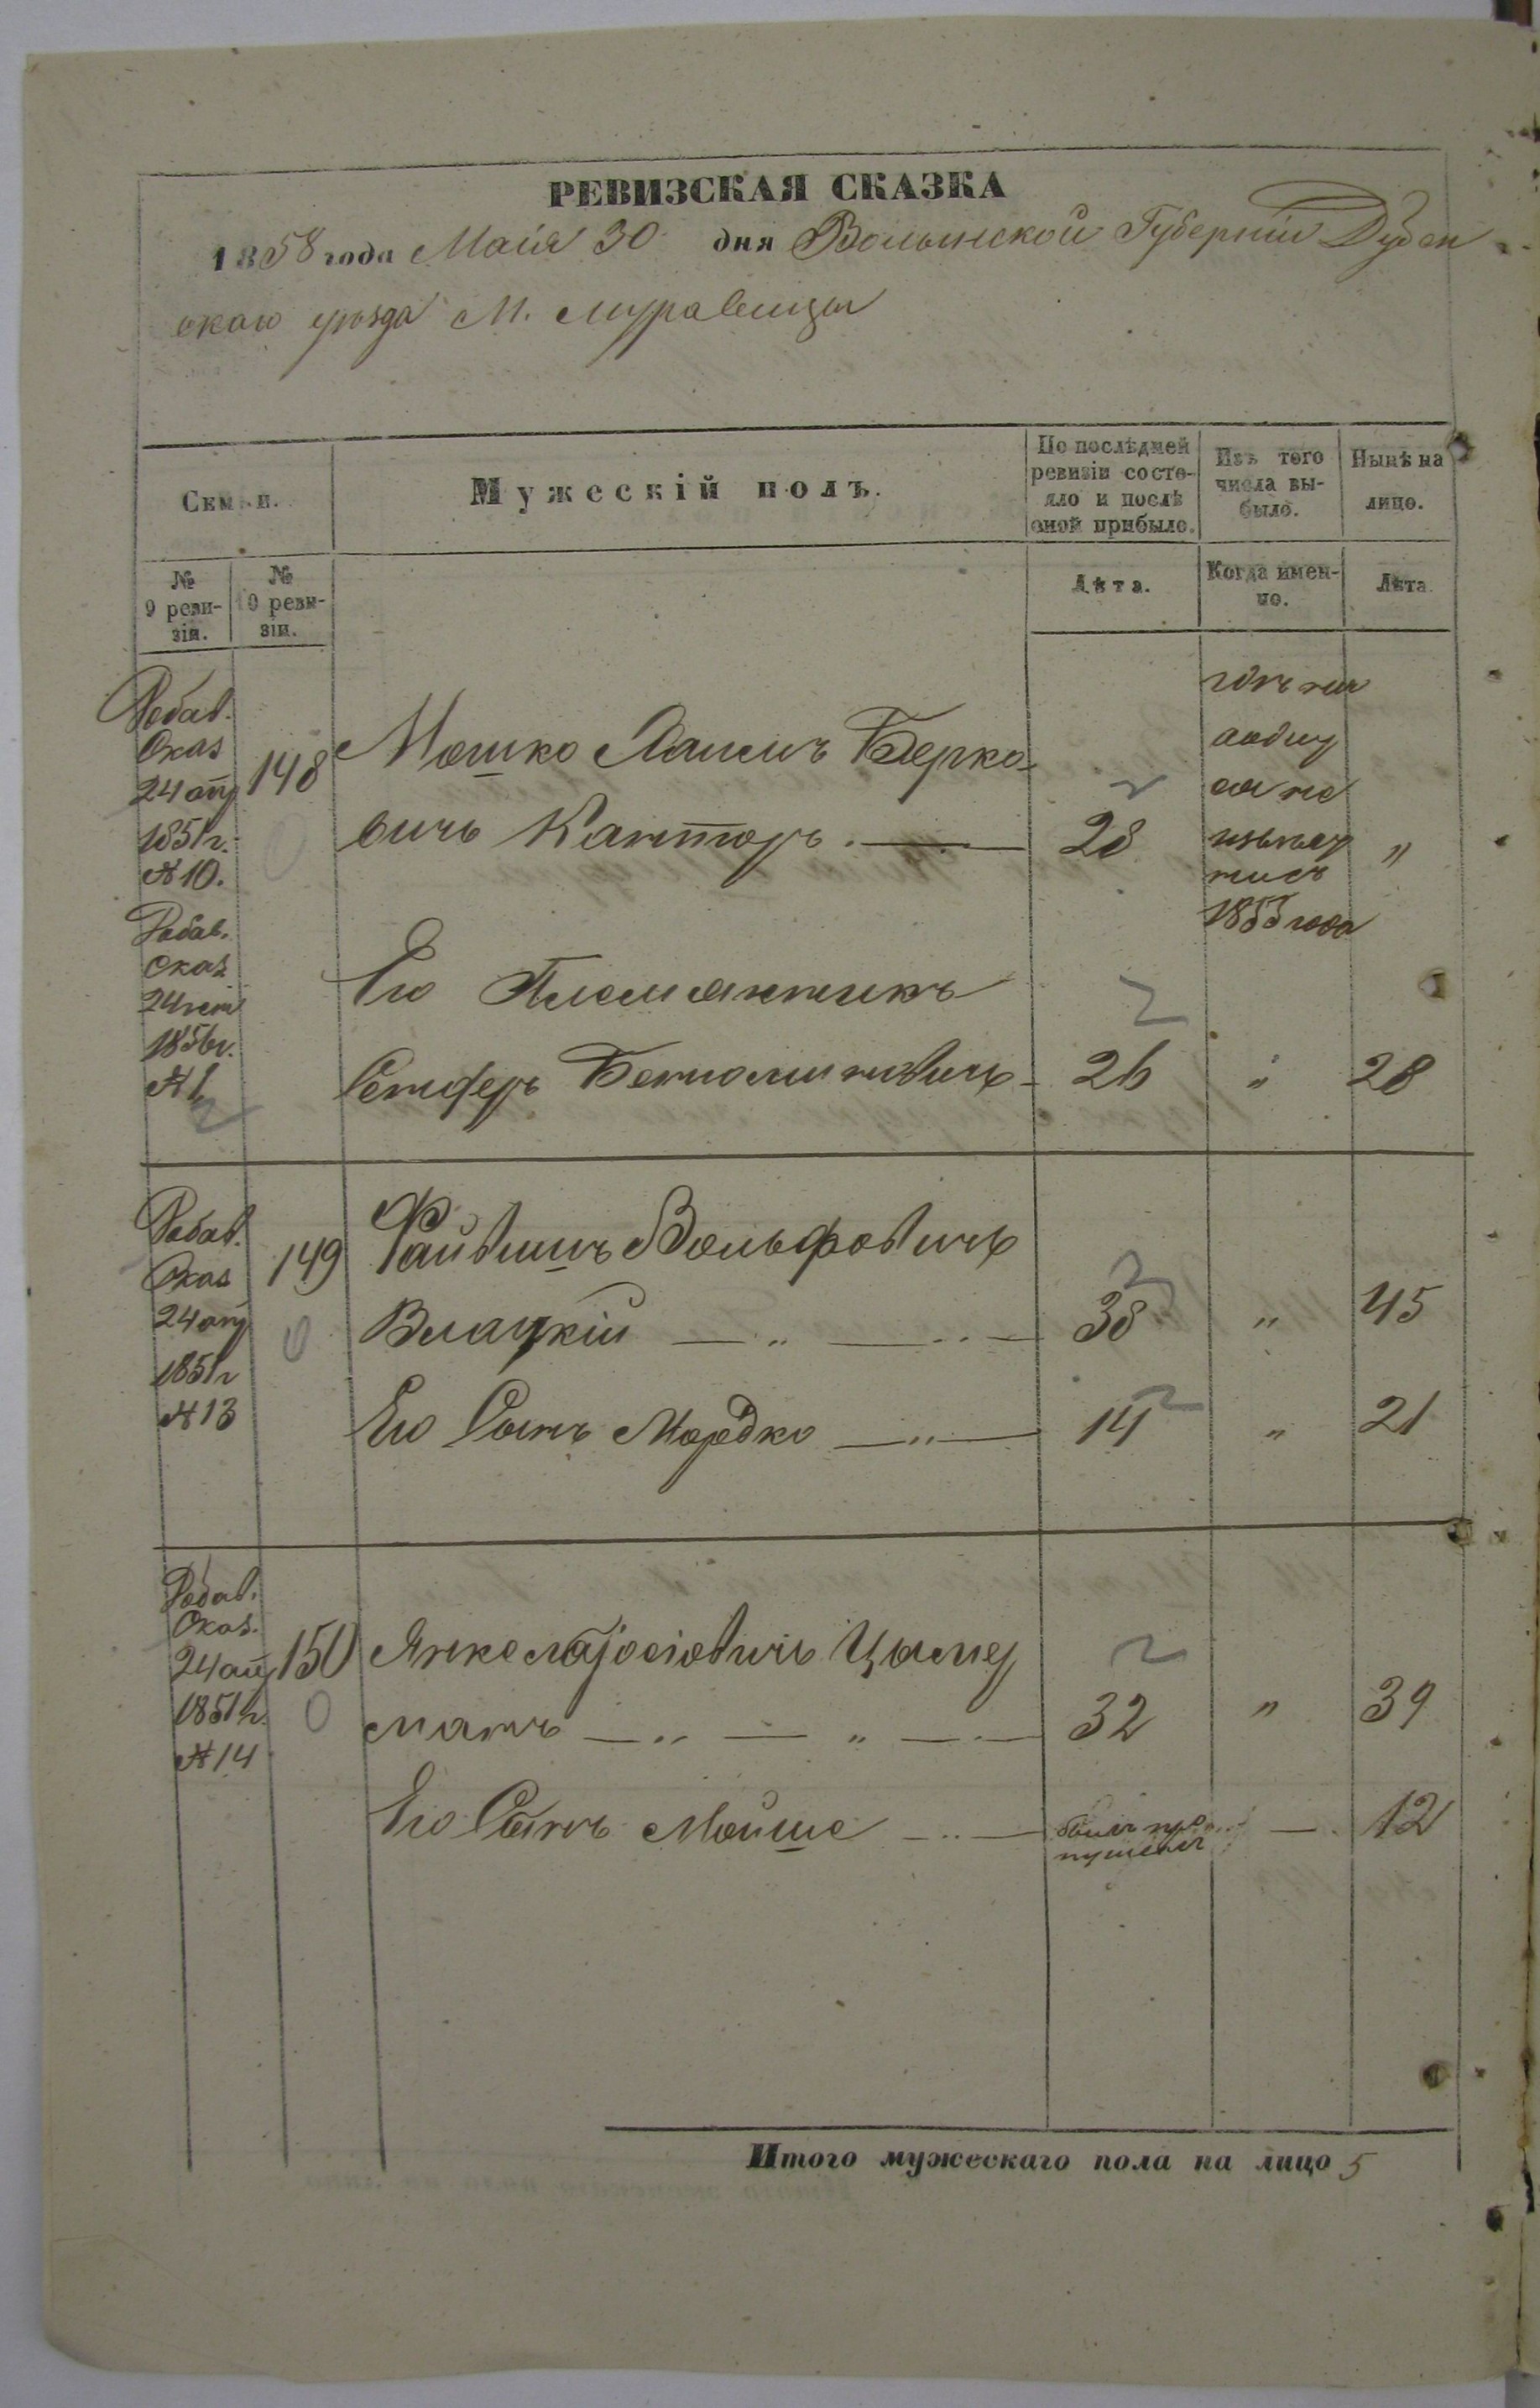 РЕВИЗСКАЯ СКАЗКА
1858 года Маія 30 дня Волынской Губерніи Дубен
скаго уѣзда М. Муравицы
Семьи.
Мужескій полъ.
По послѣдней ревизіи состояло и послѣ оной прибыло.
Изъ того числа выбыло.
Нынѣ на лицо.
№ 9 ревизіи.
№ 10 ревизіи.
Лѣта.
Когда именно.
Лѣта
Добав.
Сказ
24 апр
1851 г.
№ 10.
148
Мошко Берко-
вичь Канторъ
28
1853 года
"
Добав.
Сказ
24
1856 г.
№ 1
Его Племянникъ
Бениоминовичь
26
"
28
Добав.
Сказ
24 апр
1851 г
№ 13
149
Файвишъ Вольфовичь
38
"
45
Его Сынъ Мордко
14
"
21
Добав.
Сказ.
24 апр
1851 г.
№ 14
150
Янкель Іосіовичь Цымер
манъ
32
"
39
Его Сынъ Мойше
былъ про
пущенъ
12
Итого мужескаго пола на лицо 5